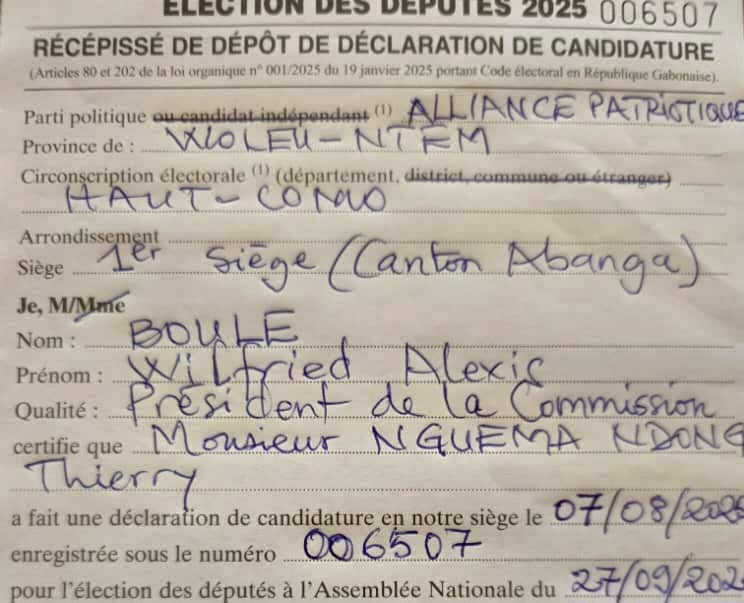 ÉLECTION DES DÉPUTÉS 2025 006507
RÉCÉPISSÉ DE DÉPÔT DE DÉCLARATION DE CANDIDATURE
(Articles 80 et 202 de la loi organique n° 001/2025 du 19 janvier 2025 portant Code électoral en République Gabonaise).
Parti politique ou candidat indépendant (1) ALLIANCE PATRIOTIQUE
Province de : WOLEU-NTEM
Circonscription électorale (1) (département, district, commune ou étranger)
HAUT-COMO
Arrondissement
Siège 1er Siège (Canton Abanga)
Je, M/Mme
Nom : BOULE
Prénom : Wilfried Alexis
Qualité : Président de la Commission
certifie que Monsieur NGUEMA NDONG
Thierry
a fait une déclaration de candidature en notre siège le 07/08/2025
enregistrée sous le numéro 006507
pour l'élection des députés à l'Assemblée Nationale du 27/09/202